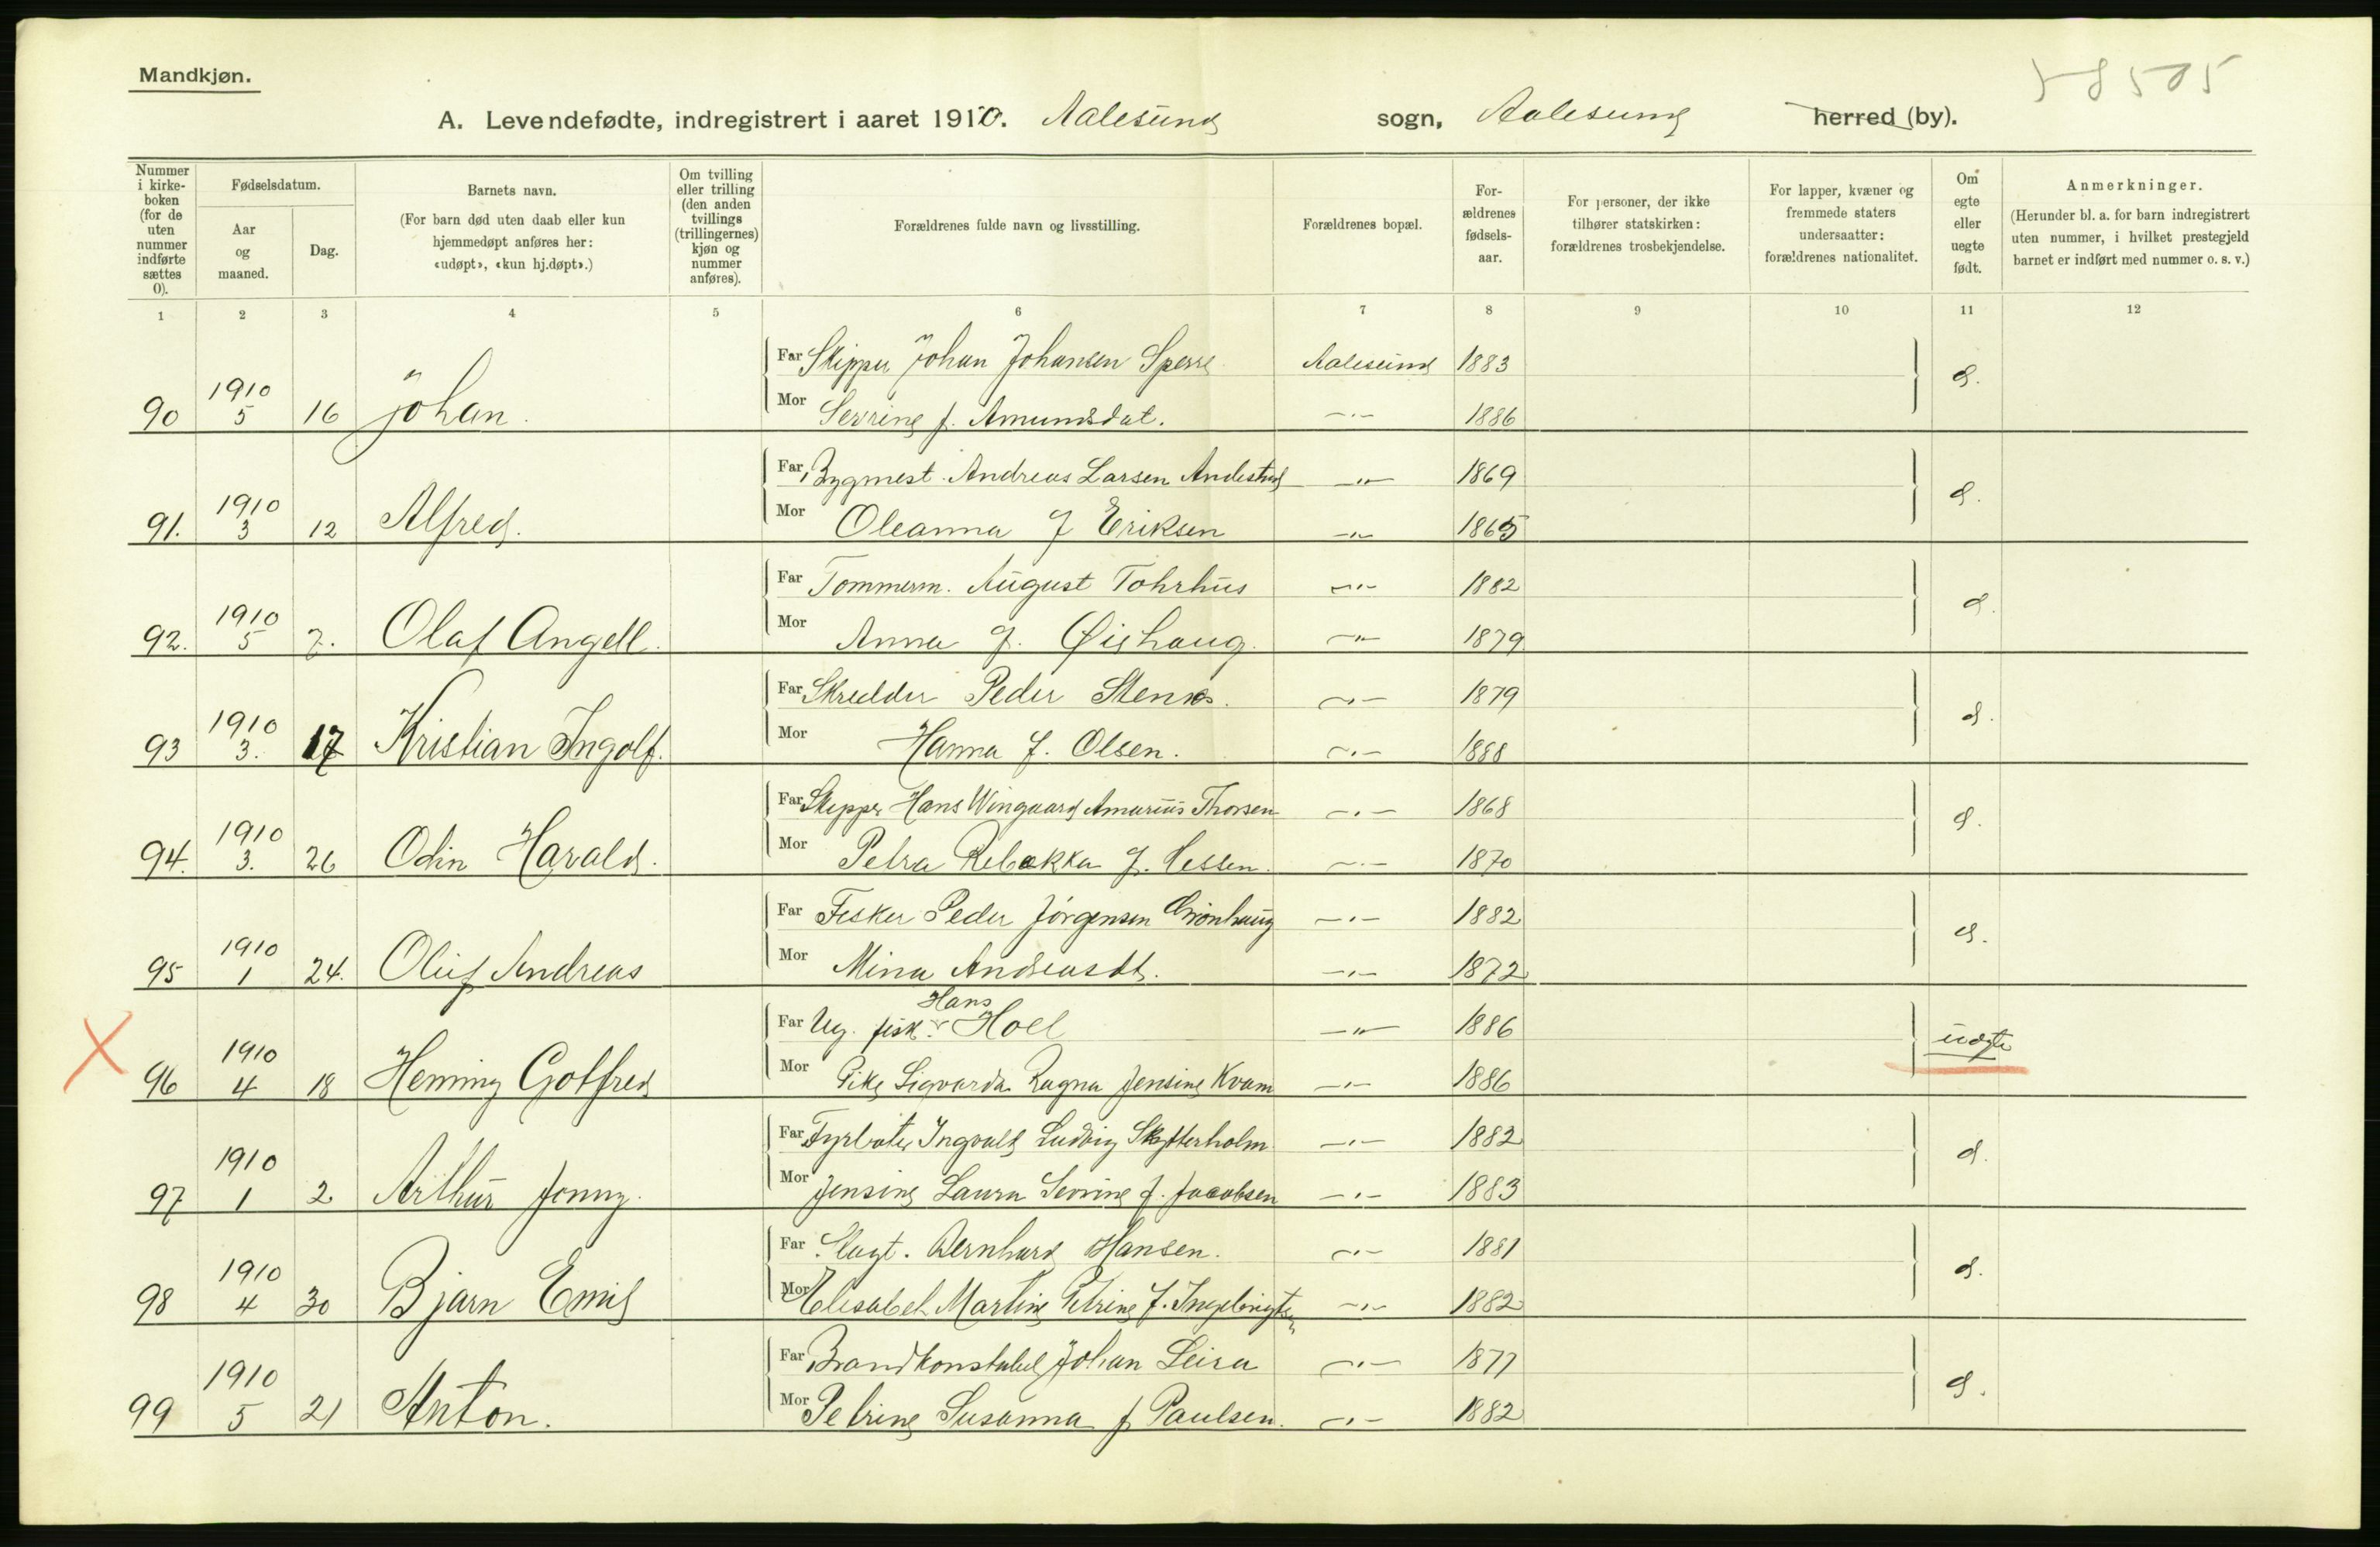 Mandkjøn.
58505
A. Levendefødte, indregistrert i aaret 1910. Aalesund sogn, Aalesund herred (by).
Nummer i kirkeboken (for de uten nummer indførte sættes 0).
Fødselsdatum.
Aar og maaned.
Dag.
Barnets navn.
(For barn død uten daab eller kun hjemmedøpt anføres her: «udøpt», «kun hj.døpt».)
Om tvilling eller trilling (den anden tvillings (trillingernes) kjøn og nummer anføres).
Forældrenes fulde navn og livsstilling.
Forældrenes bopæl.
Forældrenes fødselsaar.
For personer, der ikke tilhører statskirken: forældrenes trosbekjendelse.
For lapper, kvæner og fremmede staters undersaatter: forældrenes nationalitet.
Om egte eller uegte født.
Anmerkninger.
(Herunder bl. a. for barn indregistrert uten nummer, i hvilket prestegjeld barnet er indført med nummer o. s. v.)
1 2 3 4 5 6 7 8 9 10 11 12
Far Skipper Johan Johansen Sperre Aalesund 1883
90 1910 5 16 Johan. e.
Mor Sevrine f. Amundsdat. -"- 1886
Far Bygmest. Andreas Larsen Andestad -"- 1869
91. 1910 3 12 Alfred. e.
Mor Oleanna f Eriksen -"- 1865
Far Tømmerm. August Tohrhus -"- 1882
92. 1910 5 7. Olaf Angell. e.
Mor Anna f. Øishaug. -"- 1879
Far Skredder Peder Stenes. -"- 1879
93 1910 3. 17 Kristian Ingolf. e.
Mor Hanna f. Olsen. -"- 1888
Far Skipper Hans Wingaard Amarius Thorsen -"- 1868
94. 1910 3. 26 Odin Harald. e.
Mor Petra Rebekka f. Hessen. -"- 1870
Far Fisker Peder Jørgensen Grønhaug -"- 1882
95 1910 1 24. Oluf Andreas e.
Mor Mina Andreasdt. -"- 1872
Far Ug. fisk. Hans Hoel -"- 1886
X 96 1910 4 18 Heming Gotfred uægte
Mor Pike Sigvarda Ragna Jensine Kvam -"- 1886
Far Fyrbøter Ingvald Ludvig Skytterholm -"- 1882
97 1910 1 2 Arthur Jonny. e.
Mor Jensine Laura Sevrine f. Jacobsen -"- 1883
Far Slagt. Bernhard Hansen. -"- 1881
98 1910 4 30 Bjarn Emil e.
Mor Elisabet Martine Petrine f. Ingebrigtsen -"- 1882
Far Brandkonstabel Johan Leira -"- 1877
99 1910 5 21 Anton. e.
Mor Petrine Susanna f Paulsen. -"- 1882